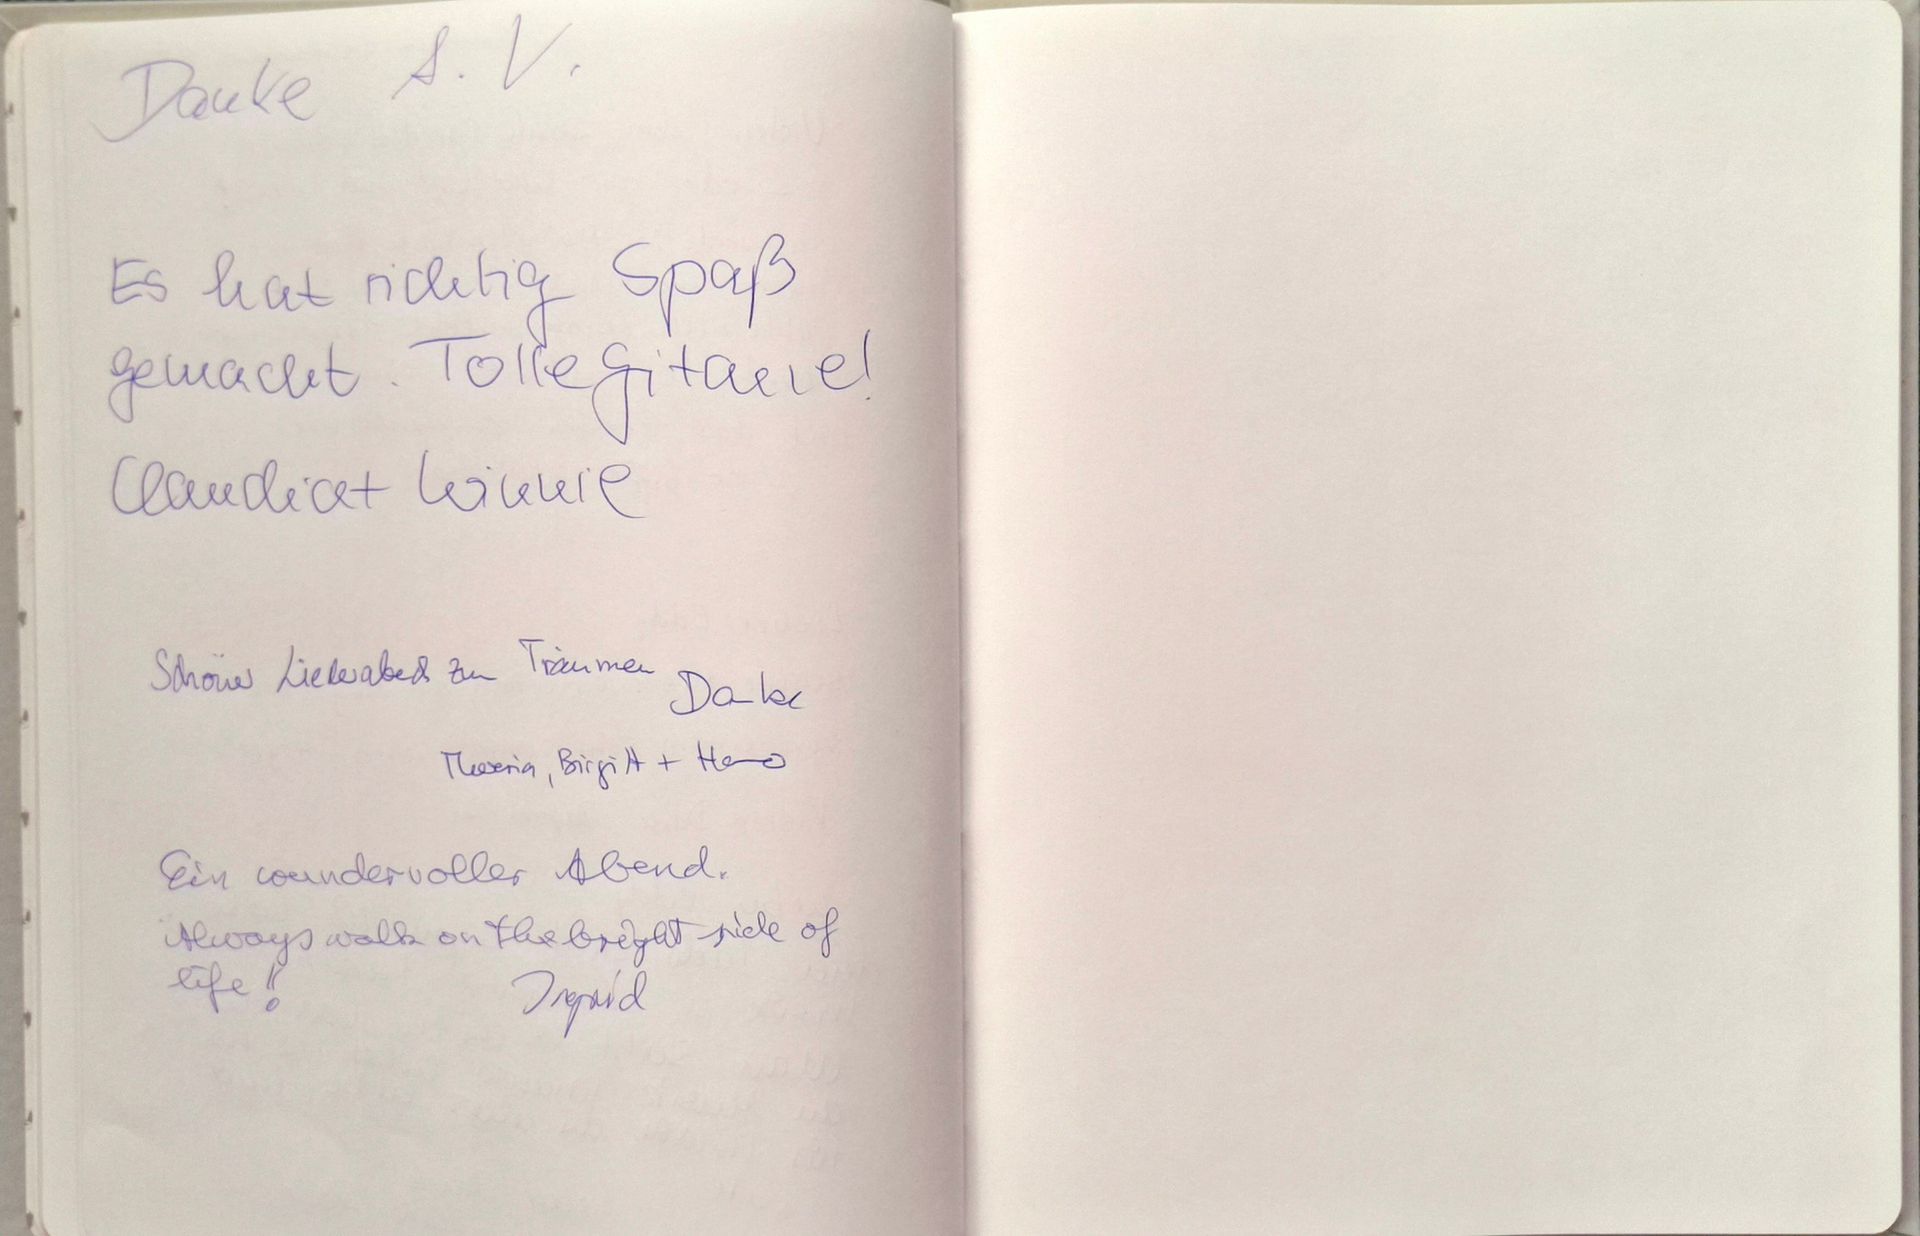 Danke S. V.
Es hat richtig Spaß
gemacht. Tolle Gitarre!
Claudia + Winnie
Schöner Liederabend zum Träumen
Danke
Birgitt +
Ein wundervoller Abend.
Always walk on the bright side of
life!!
Ingrid